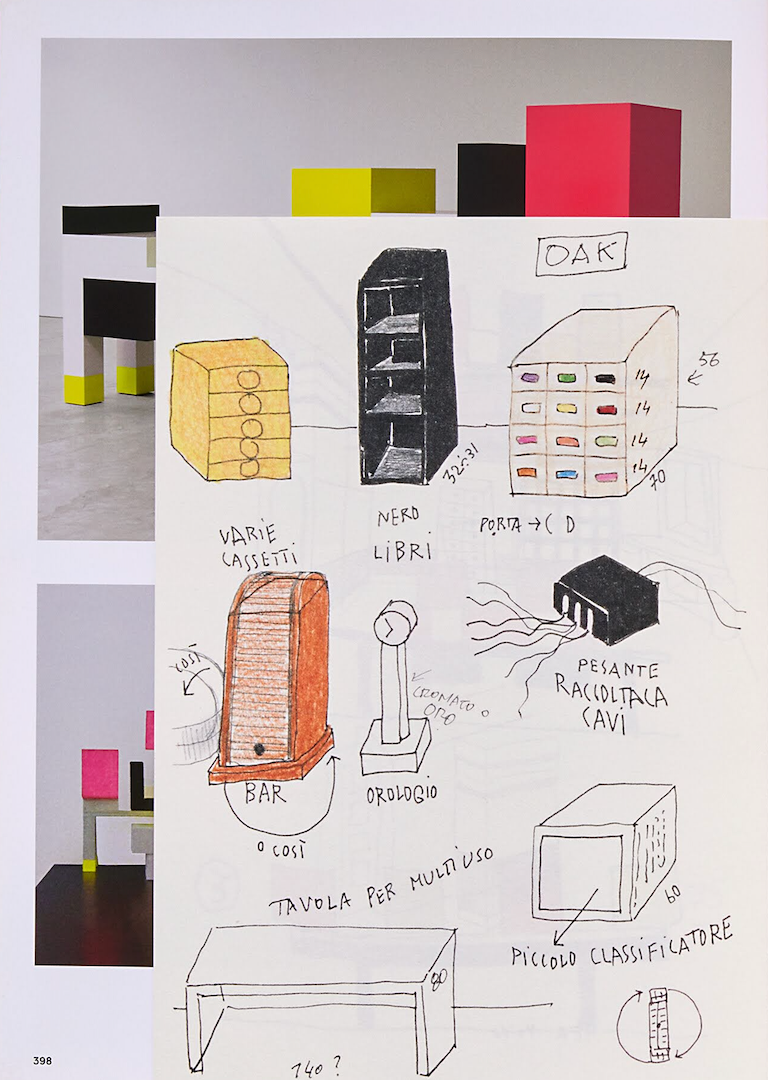 OAK
56
14
14
14
14
70
32÷31
VARIE
CASSETTI
NERO
LIBRI
PORTA → C D
COSÌ
CROMATO O
ORO
PESANTE
CAVI
BAR
OROLOGIO
O COSÌ
TAVOLA PER MULTIUSO
60
PICCOLO CLASSIFICATORE
80
140 ?
398